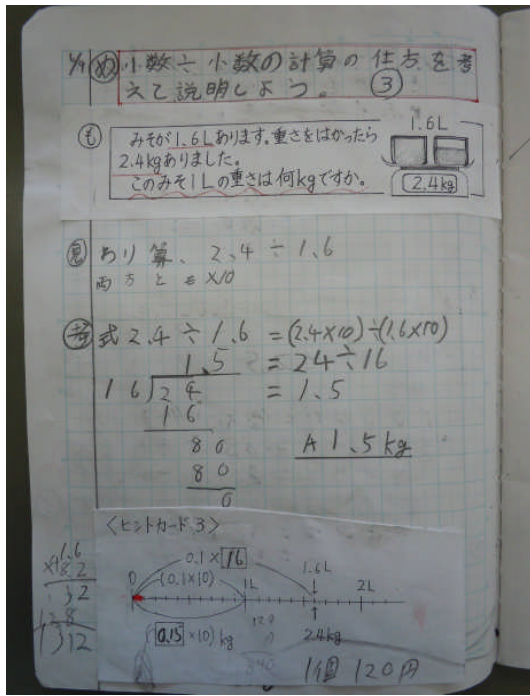 め 小数÷小数の計算の仕方を考
えて説明しよう。 ③
も みそが1.6Lあります。重さをはかったら
2.4kgありました。
このみそ1Lの重さは何kgですか。
1.6L
2.4kg
見 わり算、2.4÷1.6
両方とも×10
考 式 2.4÷1.6 =(2.4×10)÷(1.6×10)
=24÷16
=1.5
1.5
16 24
16
80
80
0
A 1.5kg
<ヒントカード3>
0.1×16
(0.1×10)
1.6L
0 1L 2L
(0.15×10)kg
2.4kg
840
1個120円
1.6
32
128
1312